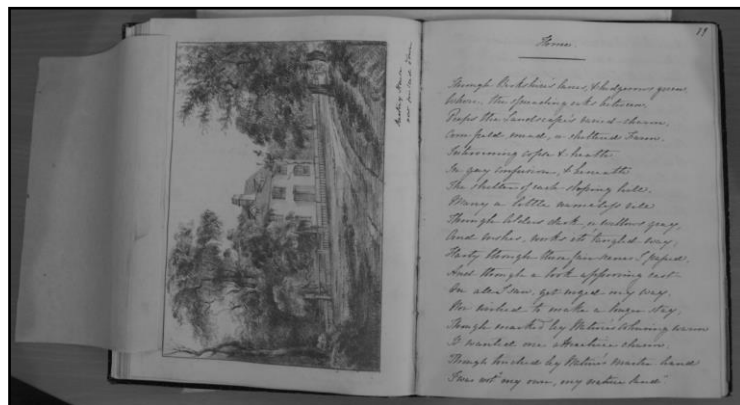 Home.
Through Berkshire's lanes, & hedgerows green
Where, the spreading oaks between
Peeps the Landscape's varied charm,
Corn field, mead, & sheltered Farm,
Intervening copse & heath
In gay confusion, & beneath
The shelter of each sloping hill
Many a little nameless
Through alders dark, & willows gray,
And rushes, works its' tangled way;
Hasty through these fair scenes I passed,
And though a look approving cast
On all I saw, yet urged my way,
Nor wished to make a longer stay,
Though marked by Nature's warm
It wanted one attractive charm,
Though touched by Nature's master hand
T'was not "my own, my native land"